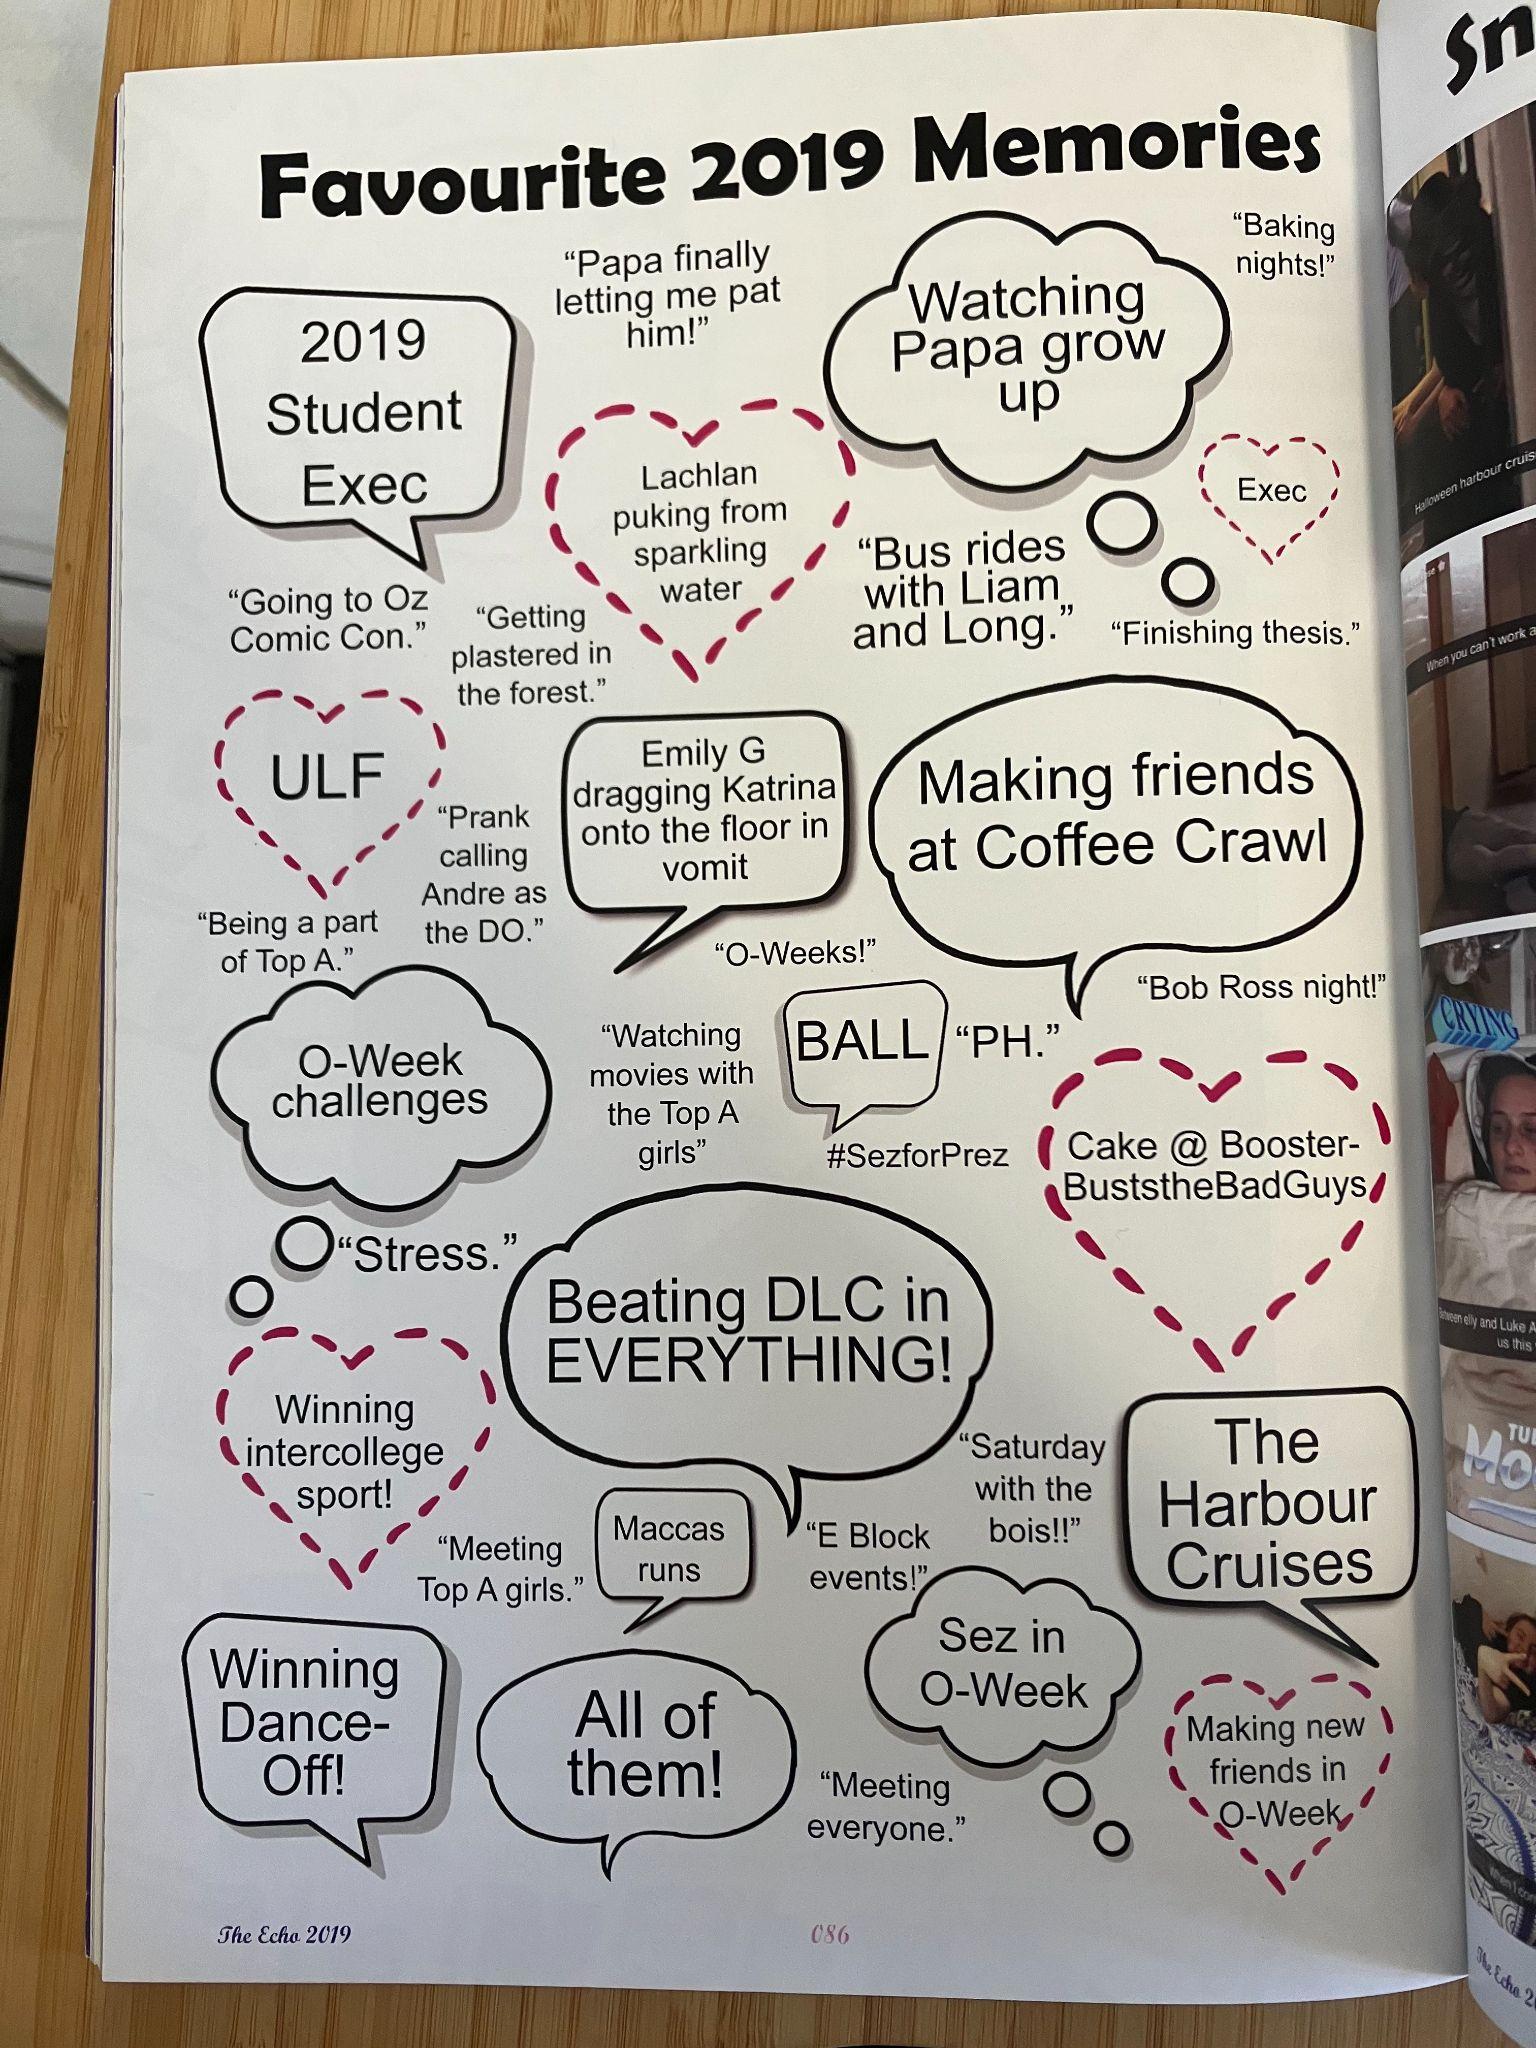 Favourite 2019 Memories
"Baking
nights!"
"Papa finally
letting me pat
him!"
Watching
Papa grow
up
2019
Student
Exec
Lachlan
puking from
sparkling
water
Exec
"Bus rides
with Liam
and Long."
"Finishing thesis."
"Going to Oz
Comic Con."
"Getting
plastered in
the forest."
ULF
Emily G
dragging Katrina
onto the floor in
vomit
Making friends
at Coffee Crawl
"Prank
calling
Andre as
the DO."
"Being a part
of Top A."
"O-Weeks!"
"Bob Ross night!"
O-Week
challenges
"Watching
movies with
the Top A
girls"
BALL
"PH."
#SezforPrez
Cake @ Booster-
BuststheBadGuys
"Stress."
Beating DLC in
EVERYTHING!
Winning
intercollege
sport!
"Saturday
with the
bois!!"
The
Harbour
Cruises
"Meeting
Top A girls."
Maccas
runs
"E Block
events!"
Sez in
O-Week
Winning
Dance-
Off!
All of
them!
"Meeting
everyone."
Making new
friends in
O-Week
The Echo 2019
086
Sn
Halloween harbour cruis
When you can't work a
CRYING
Between elly and Luke A
us this
TU
MO
The Echo 2